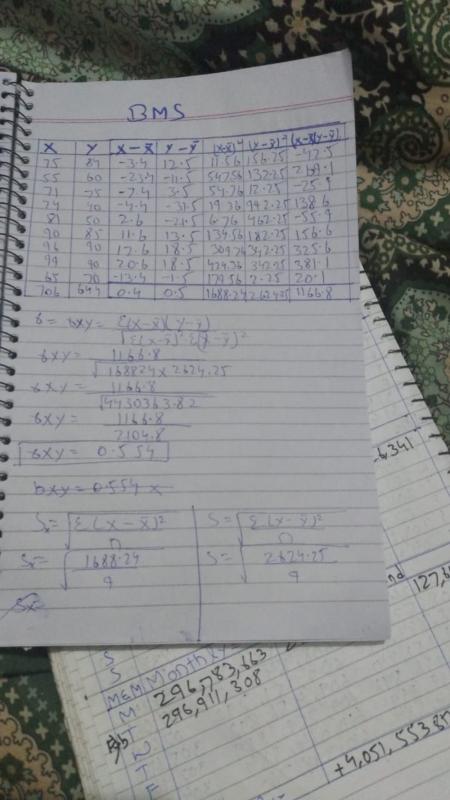 BMS
X Y X-X̄ Y-Ȳ (X-X̄)² (Y-Ȳ)² (X-X̄)(Y-Ȳ)
75 84 -3.4 12.5 11.56 156.25 -42.5
55 60 -23.4 -11.5 547.56 132.25 269.1
71 75 -7.4 3.5 54.76 12.25 -25.9
74 40 -4.4 -31.5 19.36 992.25 138.6
81 50 2.6 -21.5 6.76 462.25 -55.9
90 85 11.6 13.5 134.56 182.25 156.6
96 90 17.6 18.5 309.76 342.25 325.6
99 90 20.6 18.5 424.36 342.25 381.1
65 70 -13.4 -1.5 179.56 2.25 20.1
706 644 0.4 0.5 1688.24 2624.25 1166.8
r = rxy = Σ(X-X̄)(Y-Ȳ)
√Σ(X-X̄)² Σ(Y-Ȳ)²
rxy = 1166.8
√1688.24 x 2624.25
rxy = 1166.8
√4430363.82
rxy = 1166.8
2104.8
rxy = 0.554
bxy = 0.554 x
Sx = √Σ(X-X̄)² S = √Σ(X-X̄)²
n n
Sx = √1688.24 S = √2624.25
9 9
Sx
6,341
nd
127,6
S
S
MEM Month
M 296,783,663
T 296,911,308
N
T
F
+4,051,5538